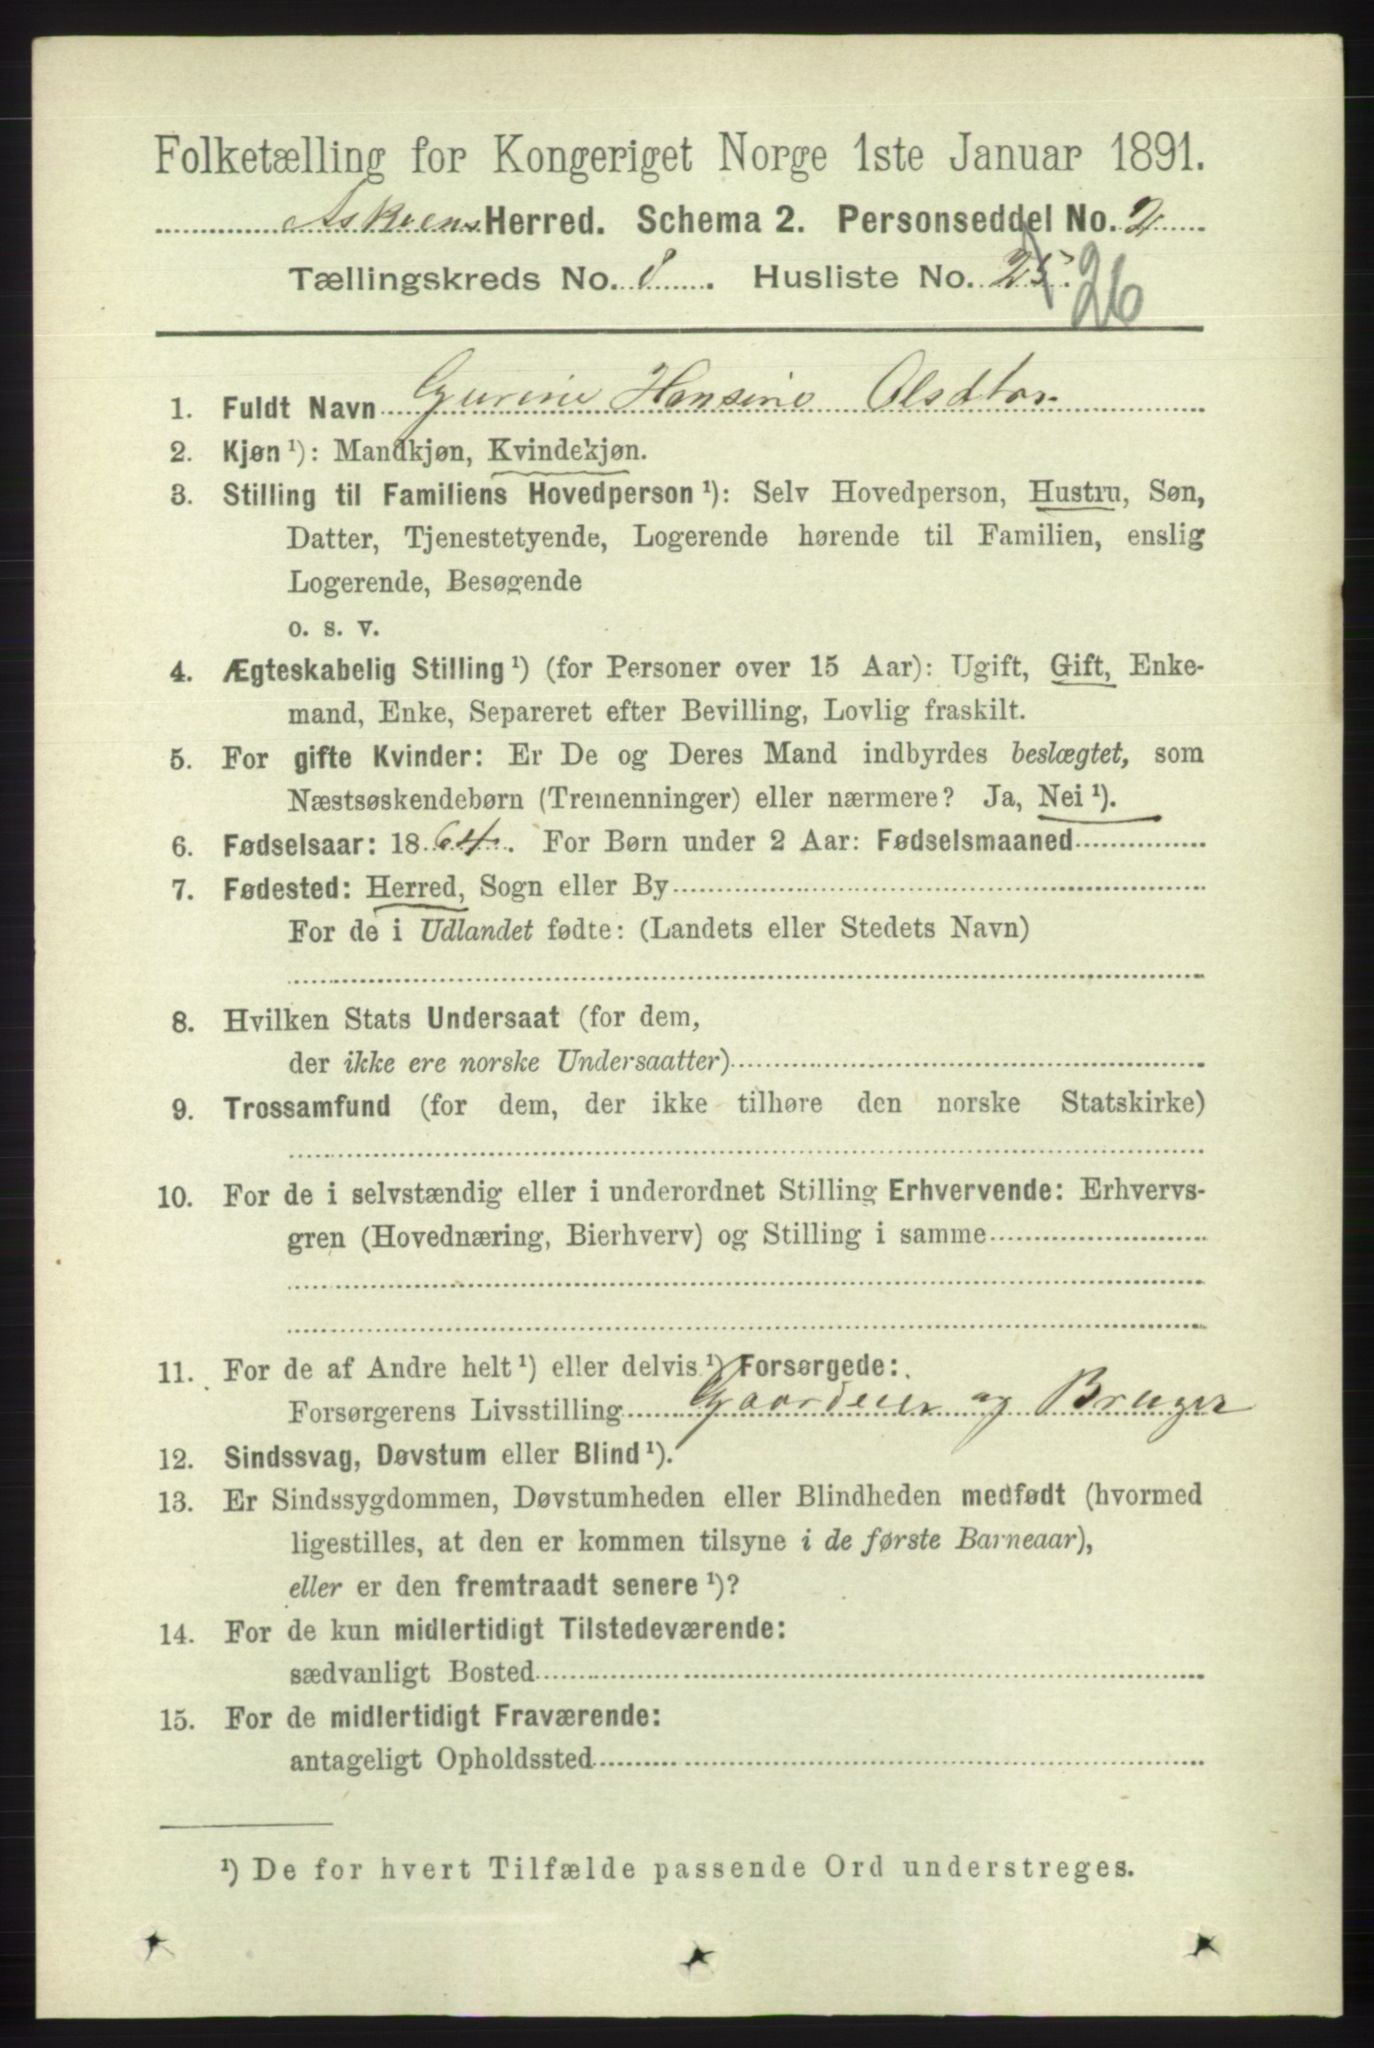 Folketælling for Kongeriget Norge 1ste Januar 1891.
Askvens Herred. Schema 2. Personseddel No. 2
Tællingskreds No. 8. Husliste No. 25. 26
1. Fuldt Navn Gurine Hansine Olsdtor
2. Kjøn ¹): Mandkjøn, Kvindekjøn.
3. Stilling til Familiens Hovedperson ¹): Selv Hovedperson, Hustru, Søn,
Datter, Tjenestetyende, Logerende hørende til Familien, enslig
Logerende, Besøgende
o. s. v.
4. Ægteskabelig Stilling ¹) (for Personer over 15 Aar): Ugift, Gift, Enke-
mand, Enke, Separeret efter Bevilling, Lovlig fraskilt.
5. For gifte Kvinder: Er De og Deres Mand indbyrdes beslægtet, som
Næstsøskendebørn (Tremenninger) eller nærmere? Ja, Nei ¹).
6. Fødselsaar: 1864. For Børn under 2 Aar: Fødselsmaaned
7. Fødested: Herred, Sogn eller By
For de i Udlandet fødte: (Landets eller Stedets Navn)
8. Hvilken Stats Undersaat (for dem,
der ikke ere norske Undersaatter)
9. Trossamfund (for dem, der ikke tilhøre den norske Statskirke)
10. For de i selvstændig eller i underordnet Stilling Erhvervende: Erhvervs-
gren (Hovednæring, Bierhverv) og Stilling i samme
11. For de af Andre helt ¹) eller delvis ¹) Forsørgede:
Forsørgerens Livsstilling Gaardeier og Bruger
12. Sindssvag, Døvstum eller Blind ¹).
13. Er Sindssygdommen, Døvstumheden eller Blindheden medfødt (hvormed
ligestilles, at den er kommen tilsyne i de første Barneaar),
eller er den fremtraadt senere ¹)?
14. For de kun midlertidigt Tilstedeværende:
sædvanligt Bosted
15. For de midlertidigt Fraværende:
antageligt Opholdssted
¹) De for hvert Tilfælde passende Ord understreges.